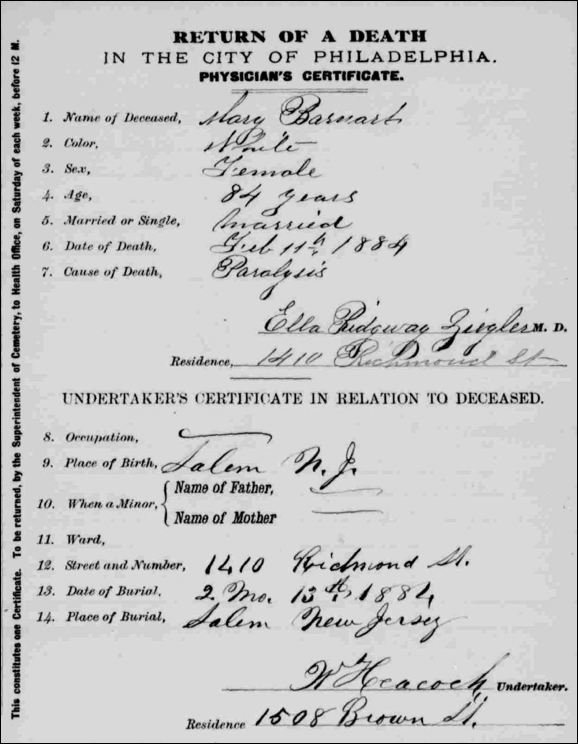 RETURN OF A DEATH
IN THE CITY OF PHILADELPHIA.
PHYSICIAN'S CERTIFICATE.
1. Name of Deceased, Mary Barnart
2. Color, White
3. Sex, Female
4. Age, 84 years
5. Married or Single, Married
6. Date of Death, Feb 11th, 1884
7. Cause of Death, Paralysis
Ella Ridgway Ziegler M. D.
Residence, 1410 Richmond St
UNDERTAKER'S CERTIFICATE IN RELATION TO DECEASED.
8. Occupation,
9. Place of Birth, Salem N. J.
10. When a Minor, { Name of Father,
Name of Mother
11. Ward,
12. Street and Number, 1410 Richmond St.
13. Date of Burial, 2 Mo. 13th, 1884
14. Place of Burial, Salem New Jersey
W Heacock, Undertaker.
Residence 1508 Brown St.
This constitutes one Certificate. To be returned, by the Superintendent of Cemetery, to Health Office, on Saturday of each week, before 12 M.